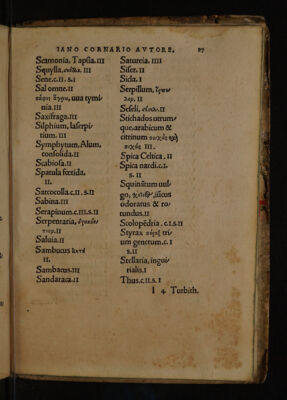 IANO CORNARIO AVTORE. 87
Scamonia. Tapsia. III
Squylla, III
Sene. c. II. s. I
Sal omne. II
uua tymi/
nia. III
Saxifraga. III
Silphium, laserpi/
tium. III
Symphytum. Alum,
consolida. II
Scabiosa. II
Spatula fœtida.
II.
Sarcocolla. c. II. s. II
Sabina. III
Serapinum. c. III. s. II
Serpentaria,
II
Saluia. II
Sambucus ἀκτὴ
II.
Sambacus. III
Sandaraca. II
Satureia. IIII
Siser. II
Sida. I
Serpillum,
II
Seseli, II
Stichados utrum/
que, arabicum &
citrinum
III
Spica Celtica. II
Spica nardi. c. I.
s. II
Squinātum uul/
go, iūcus
odoratus & ro/
tundus. II
Scolopēdria. c. I. s. II
Styrax tri/
um genetum. c. I
s. II
Stellaria, ingui/
nalis. I
Thus. c. II. s. I
l 4 Turbith.